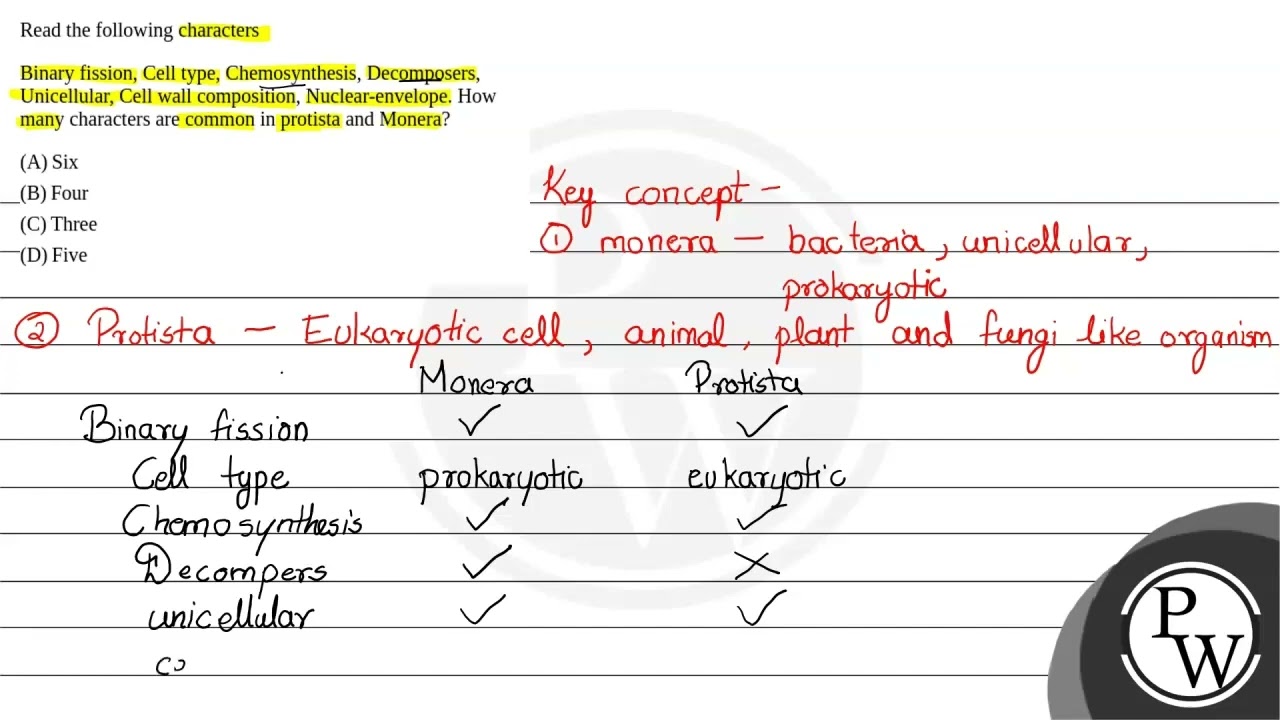 Read the following characters
Binary fission, Cell type, Chemosynthesis, Decomposers,
Unicellular, Cell wall composition, Nuclear-envelope. How
many characters are common in protista and Monera?
(A) Six
(B) Four
(C) Three
(D) Five
Key concept -
① monera - bacteria, unicellular,
prokaryotic
② Protista - Eukaryotic cell, animal, plant and fungi like organism
Monera Protista
Binary fission ✓ ✓
Cell type prokaryotic eukaryotic
Chemosynthesis ✓ ✓
Decompers ✓ ✗
unicellular ✓ ✓
PW